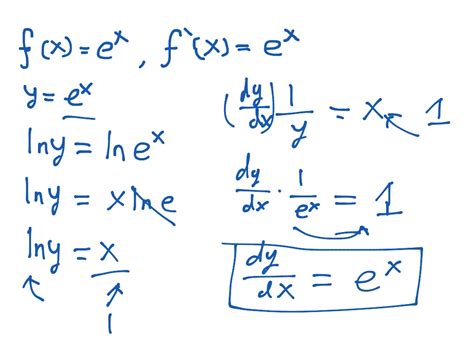 f(x) = e^x, f`(x) = e^x
y = e^x
ln y = ln e^x
ln y = x ln e
ln y = x
1
(dy/dx) 1/y = x 1
dy/dx · 1/e^x = 1
dy/dx = e^x